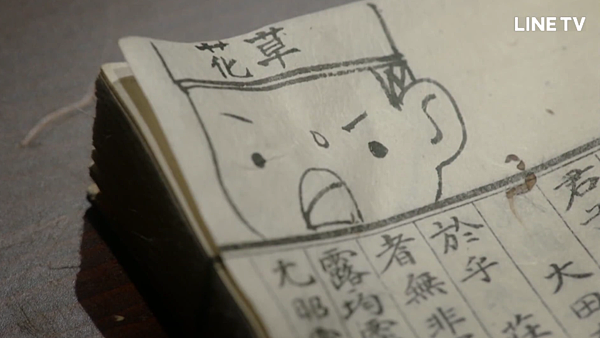 LINE TV
花草
君
大田
於乎
者無非
露均
尤